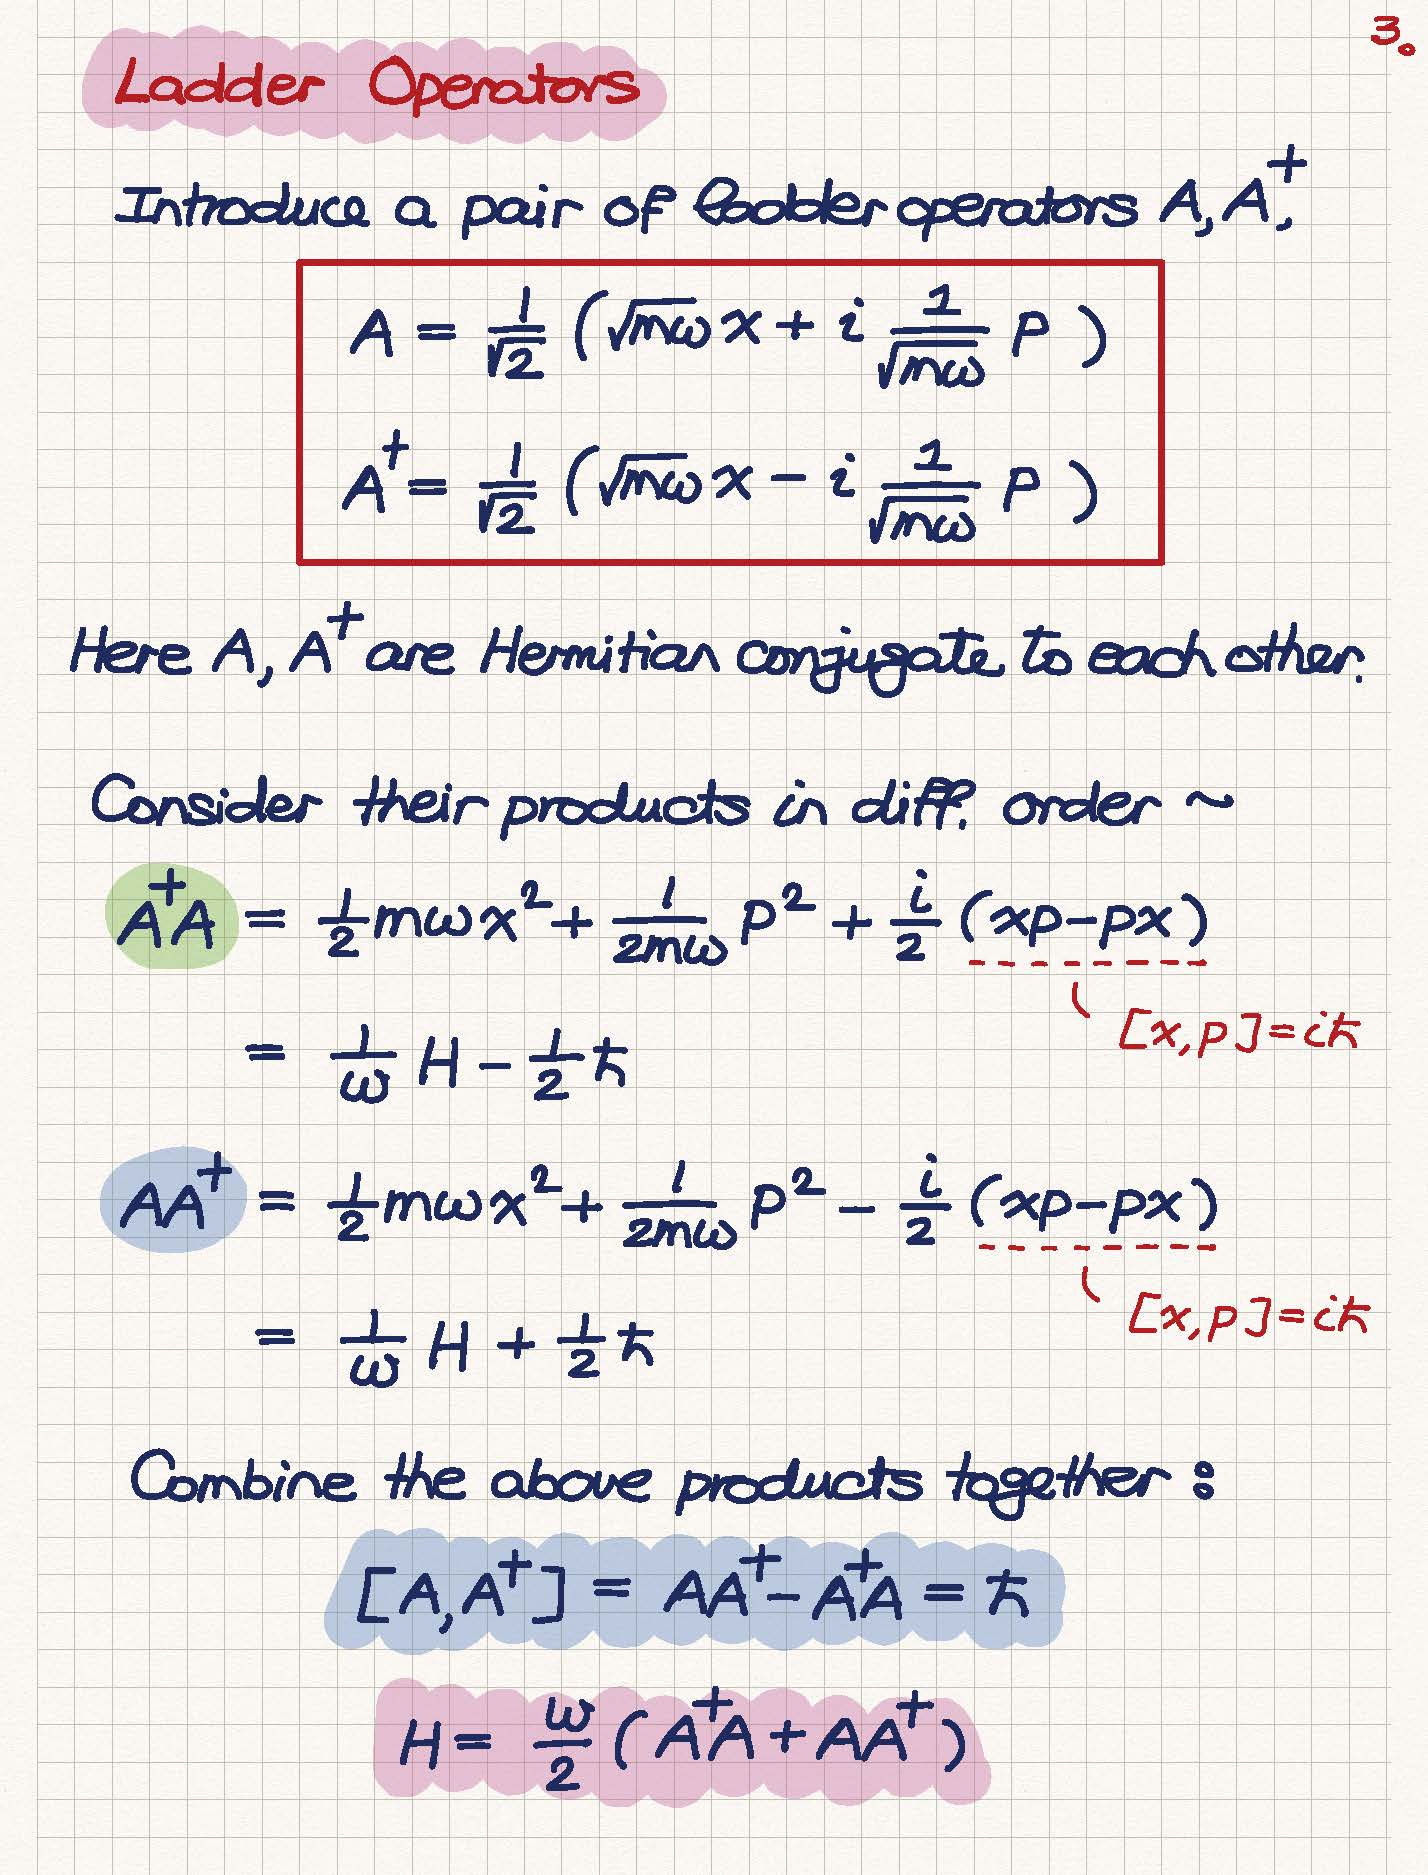 3.
Ladder Operators
Introduce a pair of ladder operators A, A†.
A = 1/√2 (√mω x + i 1/√mω p)
A† = 1/√2 (√mω x − i 1/√mω p)
Here A, A† are Hermitian conjugate to each other.
Consider their products in diff. order ~
A†A = 1/2 mωx² + 1/2mω p² + i/2 (xp − px)
[x, p] = iħ
= 1/ω H − 1/2 ħ
AA† = 1/2 mωx² + 1/2mω p² − i/2 (xp − px)
[x, p] = iħ
= 1/ω H + 1/2 ħ
Combine the above products together :
[A, A†] = AA† − A†A = ħ
H = ω/2 (A†A + AA†)